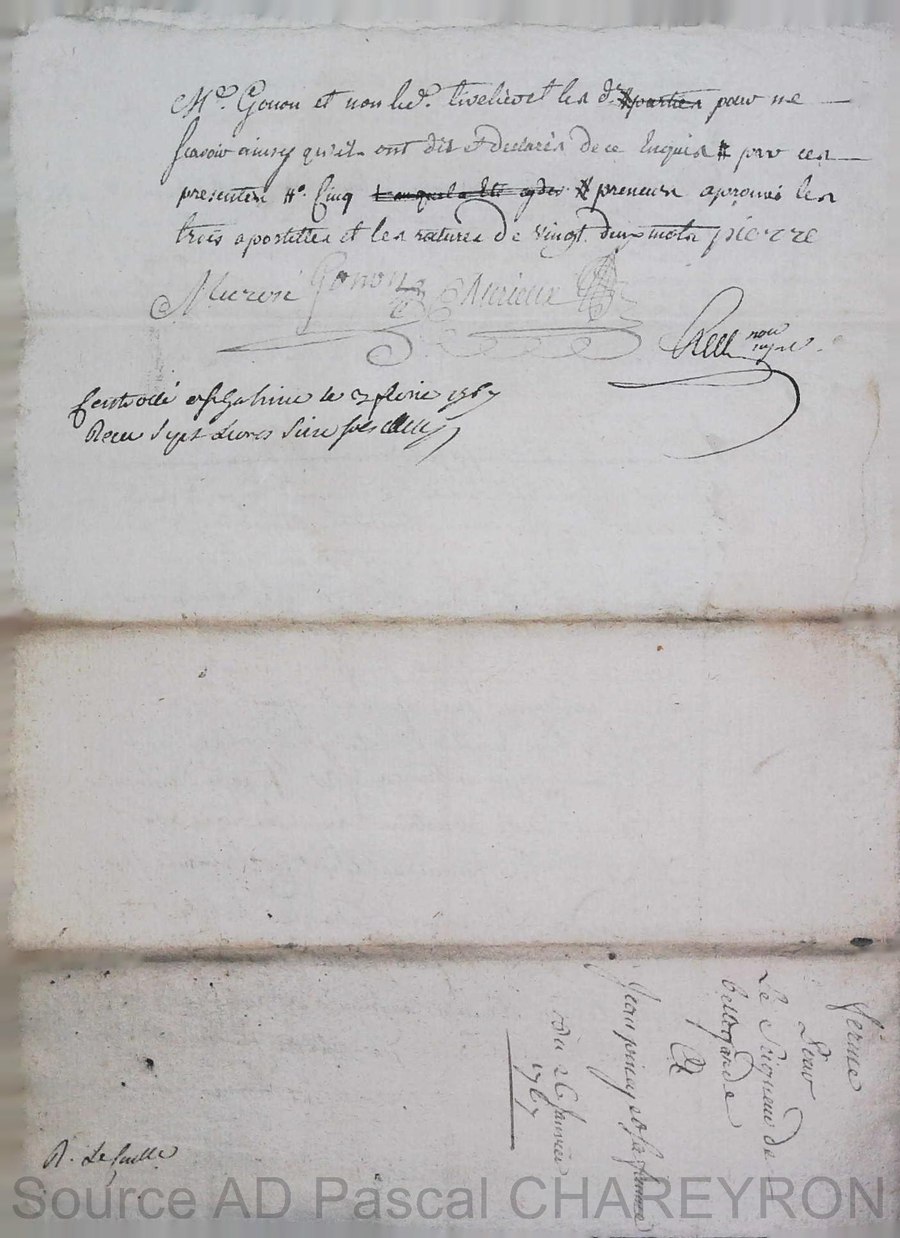 Mre. Gonon et non led. les d. parties pour ne
scavoir ainsy qu'ils ont dit et declaré de ce Enquis # par ces
presentes #. Cinq # preneurs aprouvé les
trois apostilles et les ratures de vingt deux mots pierre
Gonon Merieux
nore
Controllé le 3 fevrier 1767
Receu Sept Livres Seize sols
ferme
Pour
Le Seigneur de
bellegarde
Jean sa femme
Du 26 janvier
1767
Source AD Pascal CHAREYRON